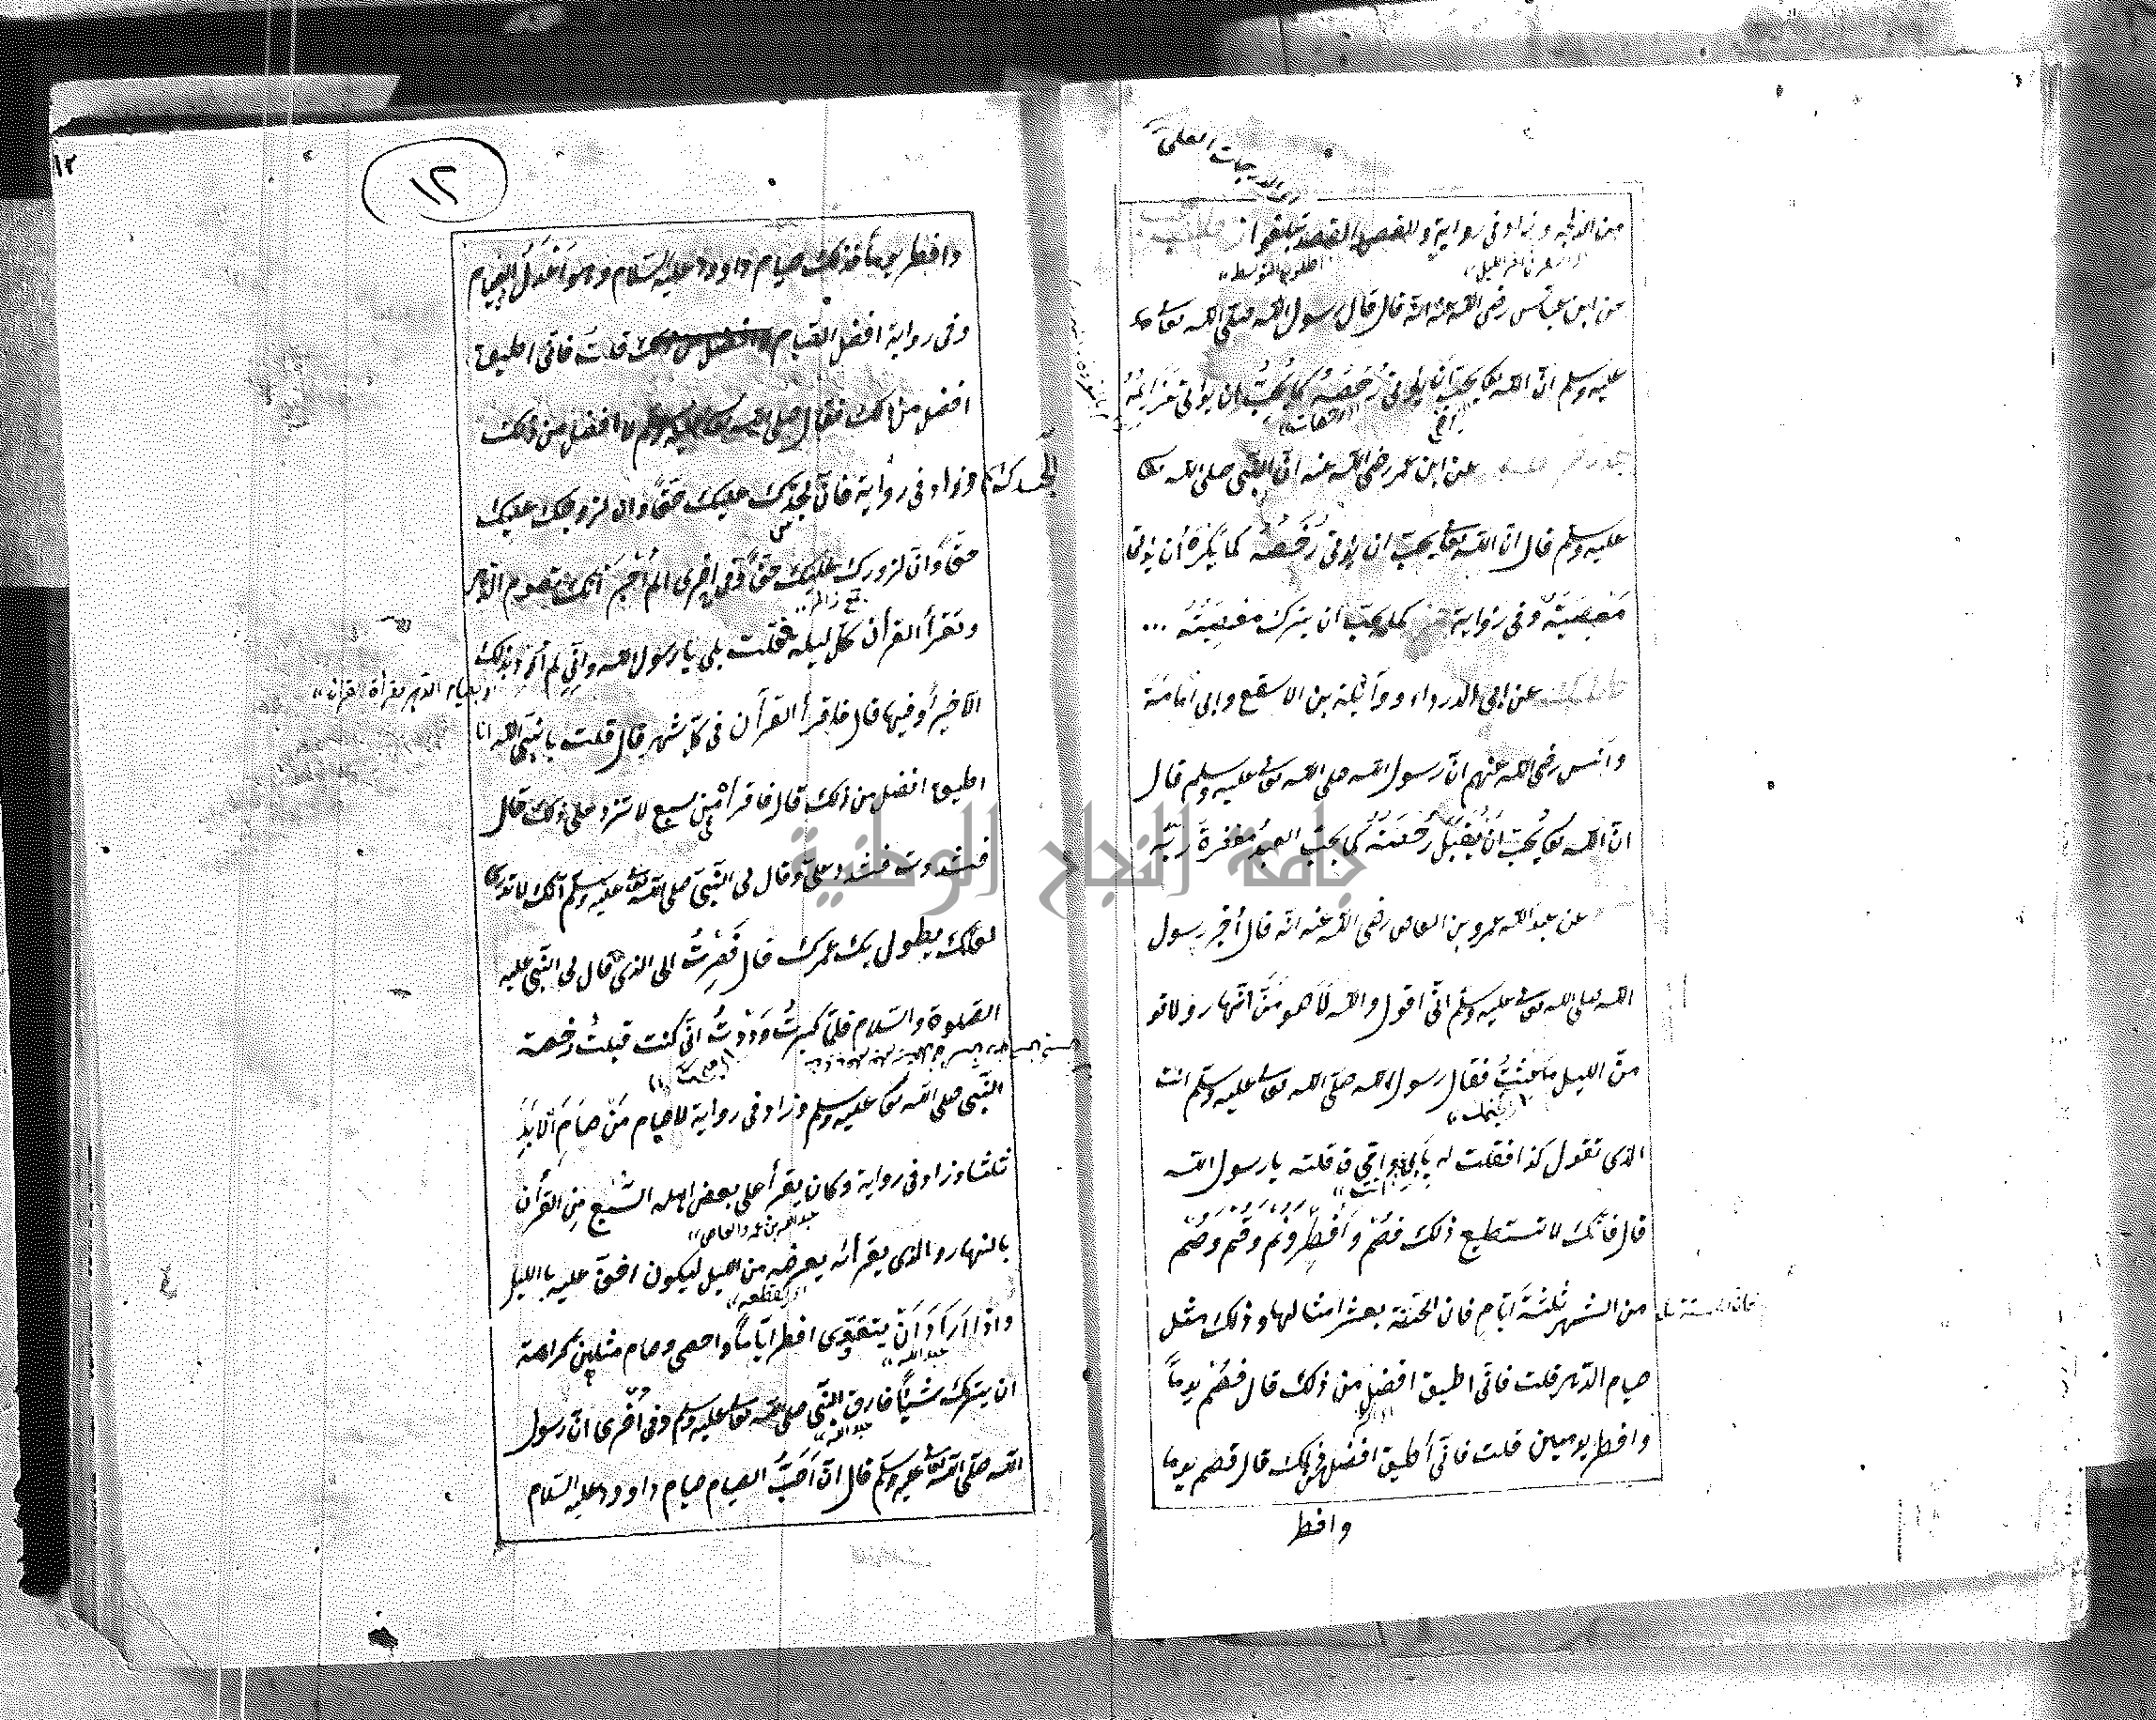 والدرجات العلى
من الدلجة وزاد في رواية والقصد القصد تبلغوا
عن ابن عباس رضي الله عنه انه قال قال رسول الله صلى الله تعالى
عليه وسلم انّ الله تعا يحبّ ان يؤتى رُخَصُهُ كما يُحِبُّ ان يؤتى عَزَائِمُهُ
عن ابن عمر رضي الله عنه انّ النّبي صلى الله تعا
عليه وسلم قال ان الله تعا يحبّ ان يؤتى رُخَصُهُ كما يَكْرَهُ أن يؤتى
مَعْصِيَتُهُ وفي رواية كما يحبّ ان يترك مَعْصِيَتُهُ ...
عن ابي الدرداء وواثلة بن الاسقع وابي امامة
وانس رضي الله عنهم انّ رسول الله صلى الله تعالى عليه وسلم قال
انّ الله تعا يُحبّ اَنْ يُقْبَلَ رُخَصُهُ كما يحبّ العبدُ مغفرةَ ربّه
عن عبد الله عمرو بن العاص رضي الله عنه انّه قال أُخبر رسول
الله صلى الله تعالى عليه وسلم انّي اقول والله لَاَصُومَنَّ النّهار ولاقو
منّ الليل ما عِشْتُ فقال رسول الله صلّى الله تعالى عليه وسلّم انت
الذي تقول كذا فقلت له بِاَبي وامّي قد قلته يا رسول الله
قال فانّك لا تستطيع ذلك فصُمْ وَاَفْطِرْ ونَمْ وَقُمْ وَصُمْ
من الشهر ثلثةَ ايّامٍ فان الحسنة بعشر امثالها وذلك مثل
صيام الدّهر قلت فانّي اطيق افضل من ذلك قال فصُمْ يوماً
وافطر يومين قلت فانّي أُطيق افضل من ذلك قال فصم يوما
وافط
١٢
١٢
وافطر يوما فذلك صيام داوود عليه السّلام وهو اَعْدَلُ الصّيام
وفي رواية افضل الصّيام قلت فانّي اطيق
افضل من ذلك فقال صلى الله تعالى عليه وسلم لا افضل من ذلك
وزاد في رواية فانّ لجسدك عليك حقًّا وان لزوجك عليك
حقًّا وانّ لزورك عليك حقًّا وفي اخرى الم اُخْبَرْ انّك تصوم الدّهر
وتقرأ القرأن كلّ ليلة فقلت بلى يا رسول الله وانّي لم أُرِدْ بذلك
الّا خيراً وفيها قال فاقرأ القرأن في كلّ شهر قال قلت يا نبيّ الله انا
اطيق افضل من ذلك قال فاقرأه في سبع لا تزد على ذلك قال
فشدّدت فشدّد عليّ وقال لي النّبيّ صلى الله تعالى عليه وسلّم انّك لا تدري
لعلّك يطول بك عمرك قال فَصِرْتُ الى الذي قال لي النّبي عليه
الصّلوة والسّلام فلمّا كبرتُ وَدِدْتُ انّي كنت قبلتُ رخصة
النّبي صلى الله تعا عليه وسلم وزاد في رواية لا صيام مَنْ صَامَ الْاَبَدَ
ثلثا وزاد في رواية وكان يقرأ على بعض اهله السُّبع مِن القرأن
عبد الله بن عمرو العاص
بالنهار والذي يقرأه يعرضه من الليل ليكون اخفّ عليه بالليل
واذا اَرَادَ اَنْ يتقوّى افطر ايّاماً واحصى وصام مثلهنّ كراهة
عبد الله
ان يترك شيئاً فارق النّبي صلى الله تعالى عليه وسلم وفي اُخْرى انّ رسول
عبد الله
الله صلّى الله تعالى عليه وسلّم قال انّ اَحَبَّ الصيام صيام داوود عليه السّلام
جامعة النجاح الوطنية